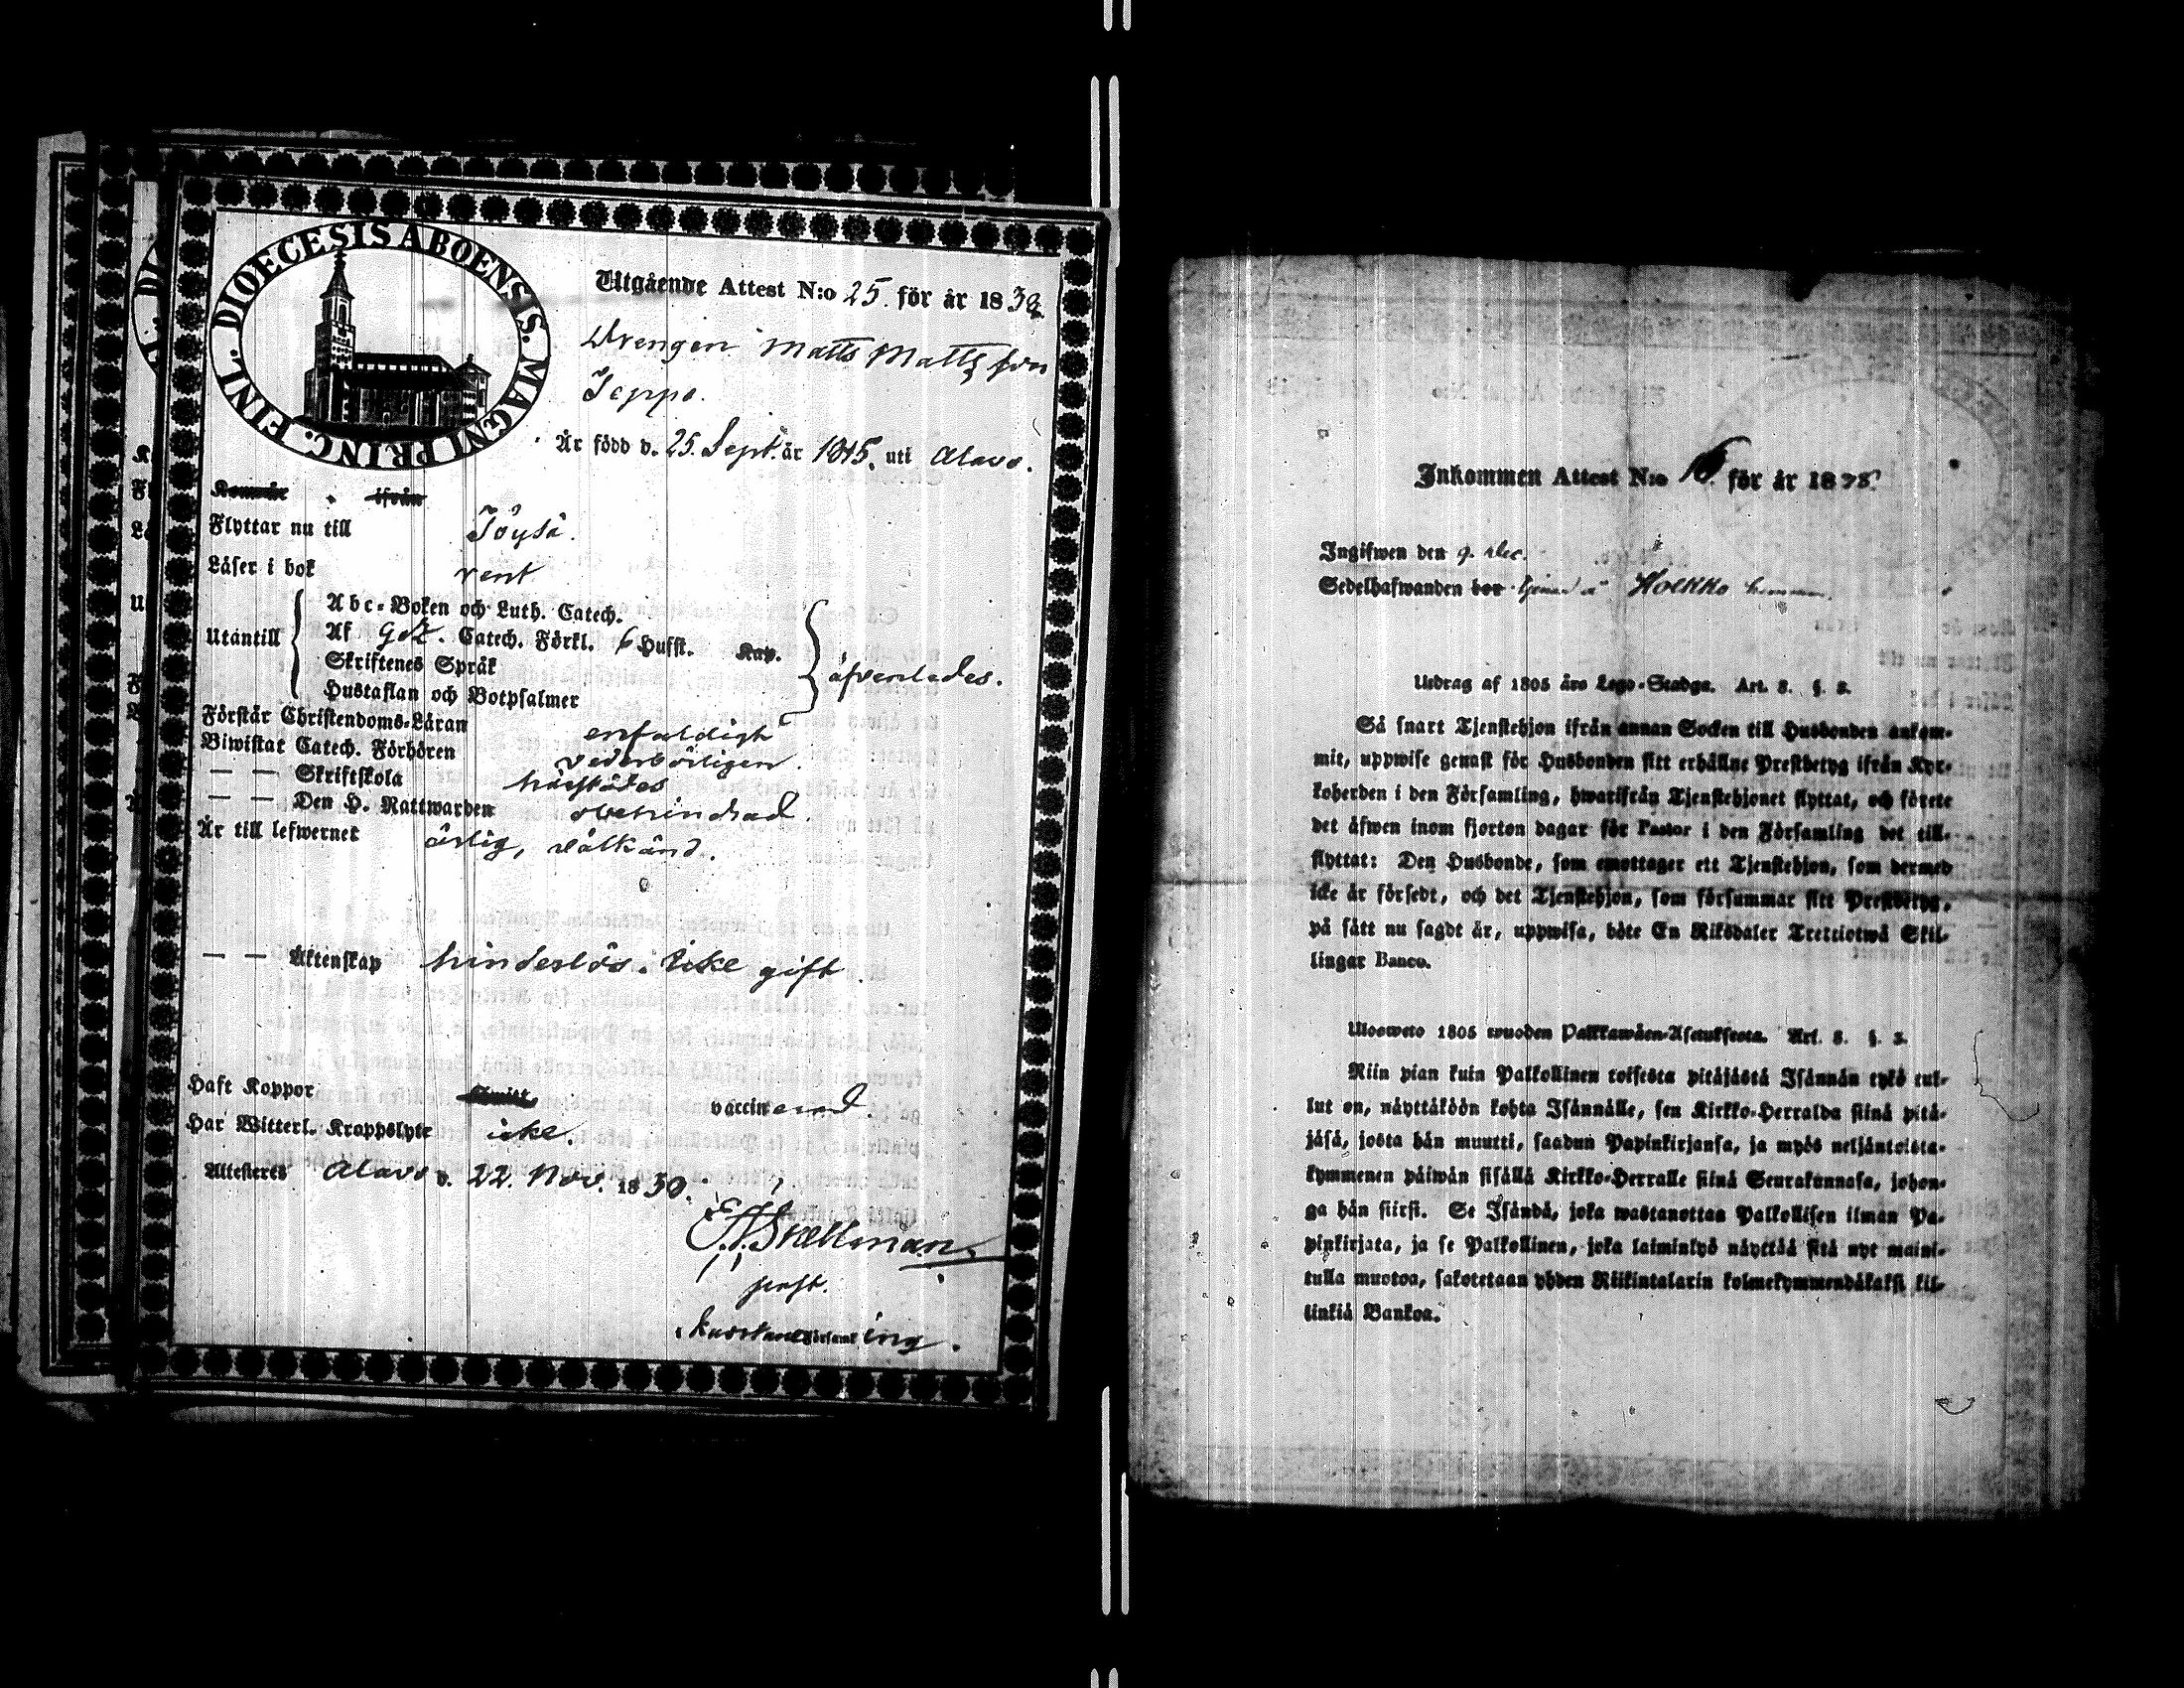 DIOECESIS ABOENSIS. MAGNI PRINC. FINL.
Utgående Attest N:o 25. för år 1838
Drengen Matts Mattsson
Jeppo.
Är född d. 25. Sept. år 1815. uti Alavo.
Flyttar nu till Töysä.
Läser i bok rent
Utantill
Abc-Boken och Luth. Catech.
Af Catech. Förkl. 6 Husst. Kap.
Skriftenes Språk
Hustaflan och Botpsalmer
äfvenledes.
Förstår Christendoms-Läran enfaldigt
Biwistat Catech. Förhören vederbörligen.
— — Skriftskola härstädes
— — Den H. Nattwarden obehindrad.
Är till lefwernet ärlig, välkänd.
— — Äktenskap hinderlös. Icke gift.
Haft Koppor vaccinerad
Har Witterl. Krappslyte icke.
Attesteres Alavo d. 22. Nov. 18
Inkommen Attest N:o för år 18
Ingifwen den 9. Dec.
Sedelhafwanden bor tjena å Holkko hemman.
Utdrag af 1805 års Lego-Stadga. Art. 8. §. 2.
Så snart Tjenstehjon ifrån annan Socken till Husbonden ankom-
mit, uppwise genast för Husbonden sitt erhållne Prestbetyg ifrån Kyr-
koherden i den Församling, hwarifrån Tjenstehjonet flyttat, och förete
det äfwen inom fjorton dagar för Pastor i den Församling det till-
flyttat: Den Husbonde, som emottager ett Tjenstehjon, som dermed
icke är försedt, och det Tjenstehjon, som försummar sitt Prestbetyg,
på sätt nu sagdt är, uppwisa, böte En Riksdaler Trettiotwå Skil-
lingar Banco.
Ulosweto 1805 wuoden Palkkawäen-Asetuksesta. Art. 8. §. 2.
Niin pian kuin Palkollinen toisesta pitäjästä Isännän tykö tul-
lut on, näyttäköön kohta Isännälle, sen Kirkko-Herralda siinä pitä-
jäsä, josta hän muutti, saadun Papinkirjansa, ja myös neljäntoista-
kymmenen päiwän sisällä Kirkko-Herralle siinä Seurakunnasa, johon-
ga hän siirsi. Se Isändä, joka wastanottaa Palkollisen ilman Pa-
pinkirjata, ja se Palkollinen, joka laiminlyö näyttää sitä nyt maini-
tulla muotoa, sakotetaan yhden Riikintalarin kolmekymmendäkaksi kil-
linkiä Bankoa.